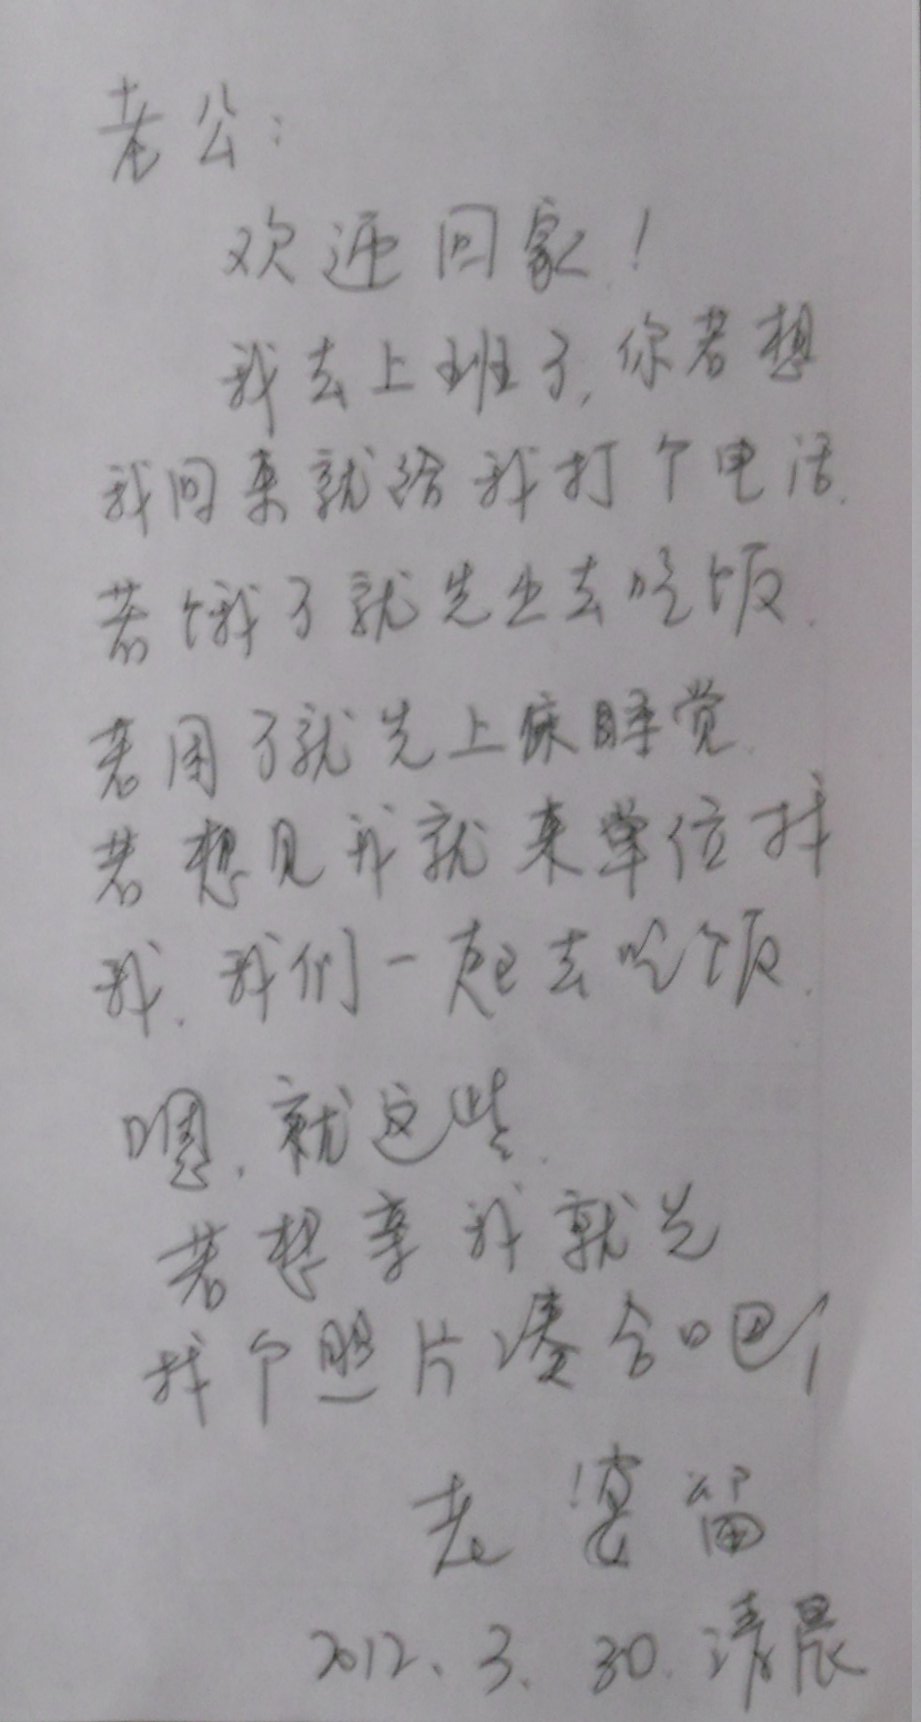 老公:
欢迎回家!
我去上班了,你若想
我回来就给我打个电话.
若饿了就先出去吃饭.
若困了就先上床睡觉.
若想见我就来单位找
我.我们一起去吃饭.
嗯.就这些.
若想亲我就先
找个照片凑合吧!
老婆留
2012.3.30.清晨